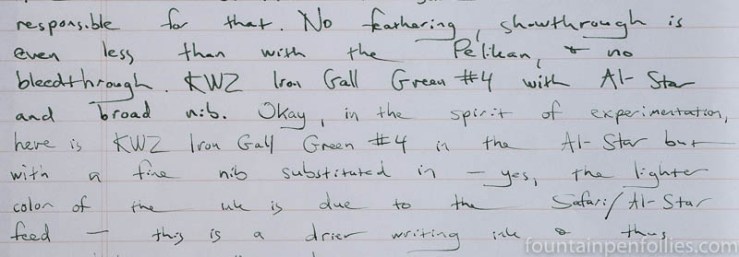 responsible for that. No feathering, showthrough is
even less than with the Pelikan, + no
bleedthrough. KWZ Iron Gall Green #4 with Al-Star
and broad nib. Okay, in the spirit of experimentation,
here is KWZ Iron Gall Green #4 in the Al-Star but
with a fine nib substituted in — yes, the lighter
color of the ink is due to the Safari/Al-Star
feed — this is a drier writing ink & thus
fountainpenfollies.com